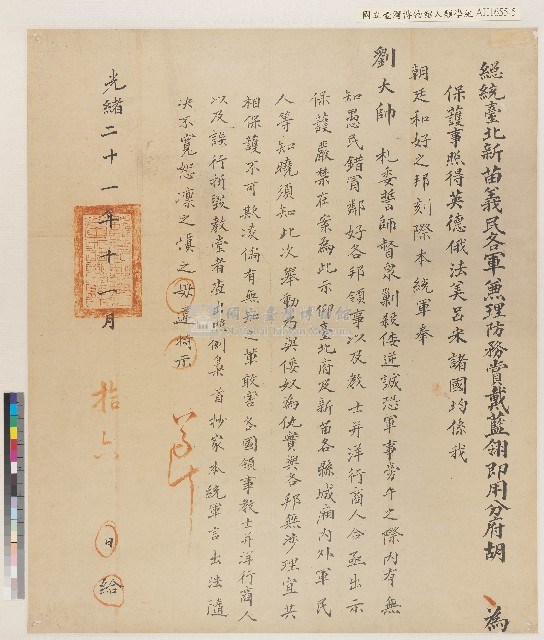 國立臺灣博物館人類學組 AH1655-5
総統臺北新苗義民各軍兼理防務賞戴藍翎即用分府胡 為
保護事照得英德俄法美呂宋諸國均係我
朝廷和好之邦刻際本統軍奉
劉大帥 札委誓師督泉剿殺倭逆誠恐軍事旁午之際內有無
知愚民錯冒鄰好各邦領事以及教士并洋行商人合亟出示
保護嚴禁在案為此示仰臺北府及新苗各縣城廂內外軍民
人等知曉須知此次舉動乃與倭奴為仇實與各邦無涉理宜共
相保護不可欺凌倘有無 之輩敢害各國領事教士并洋行商人
以及誤行拆毀教堂者 例梟首抄家本統軍言出法隨
決不寬恕凜之慎之毋違特示
光緒二十一年十一月 拾六 日 給
國立臺灣博物館
National Taiwan Museum